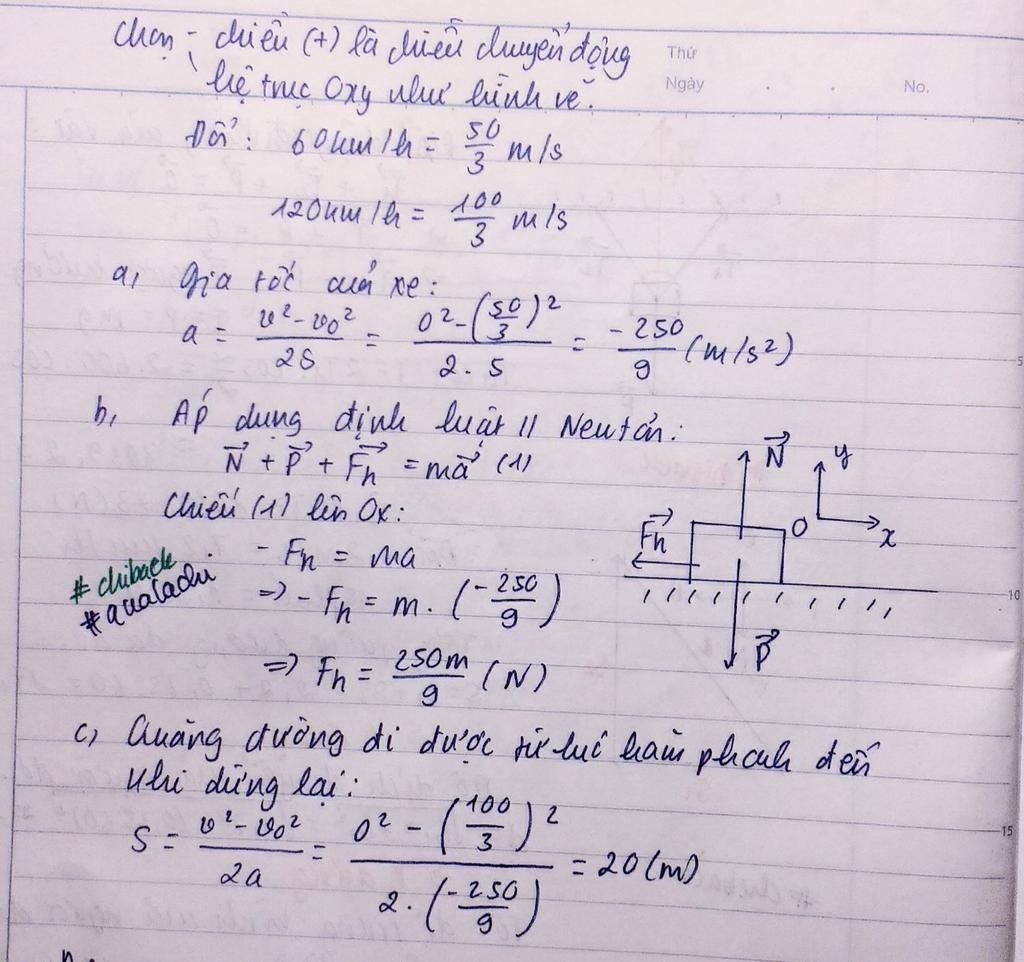 Chọn: chiều (+) là chiều chuyển động
hệ trục Oxy như hình vẽ.
Thứ
Ngày
No.
Đổi: 60km/h = 50/3 m/s
120km/h = 100/3 m/s
a, Gia tốc của xe:
a = (v² - v₀²)/2S = (0² - (50/3)²)/(2.5) = -250/9 (m/s²)
b, Áp dụng định luật II Newtơn:
N⃗ + P⃗ + Fh⃗ = ma⃗ (1)
Chiếu (1) lên Ox:
- Fh = ma
=> - Fh = m. (-250/9)
=> Fh = 250m/9 (N)
#chiback
#aualachu
N⃗
y
O
x
Fh⃗
P⃗
c, Quãng đường đi được từ lúc hãm phanh đến
khi dừng lại:
S = (v² - v₀²)/2a = (0² - (100/3)²)/(2.(-250/9)) = 20(m)
5
10
15